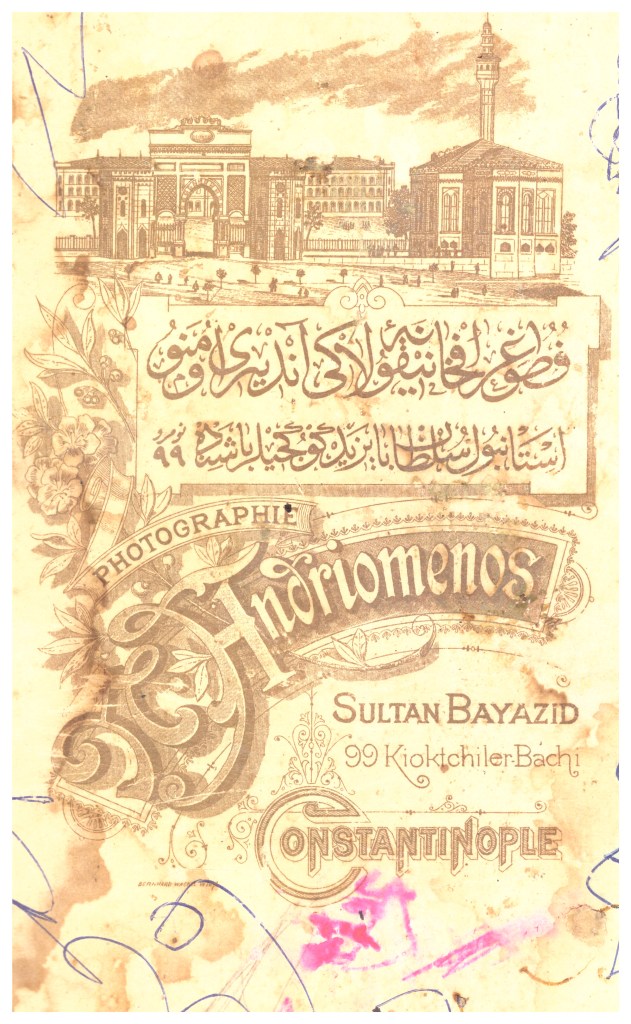 فوطوغرافخانهٔ نيقولاكى آندريومنو
استانبول سلطان بايزيد كوكجيلر باشنده نومرو ٩٩
PHOTOGRAPHIE
Andriomenos
SULTAN BAYAZID
99 Kioktchiler-Bachi
CONSTANTINOPLE